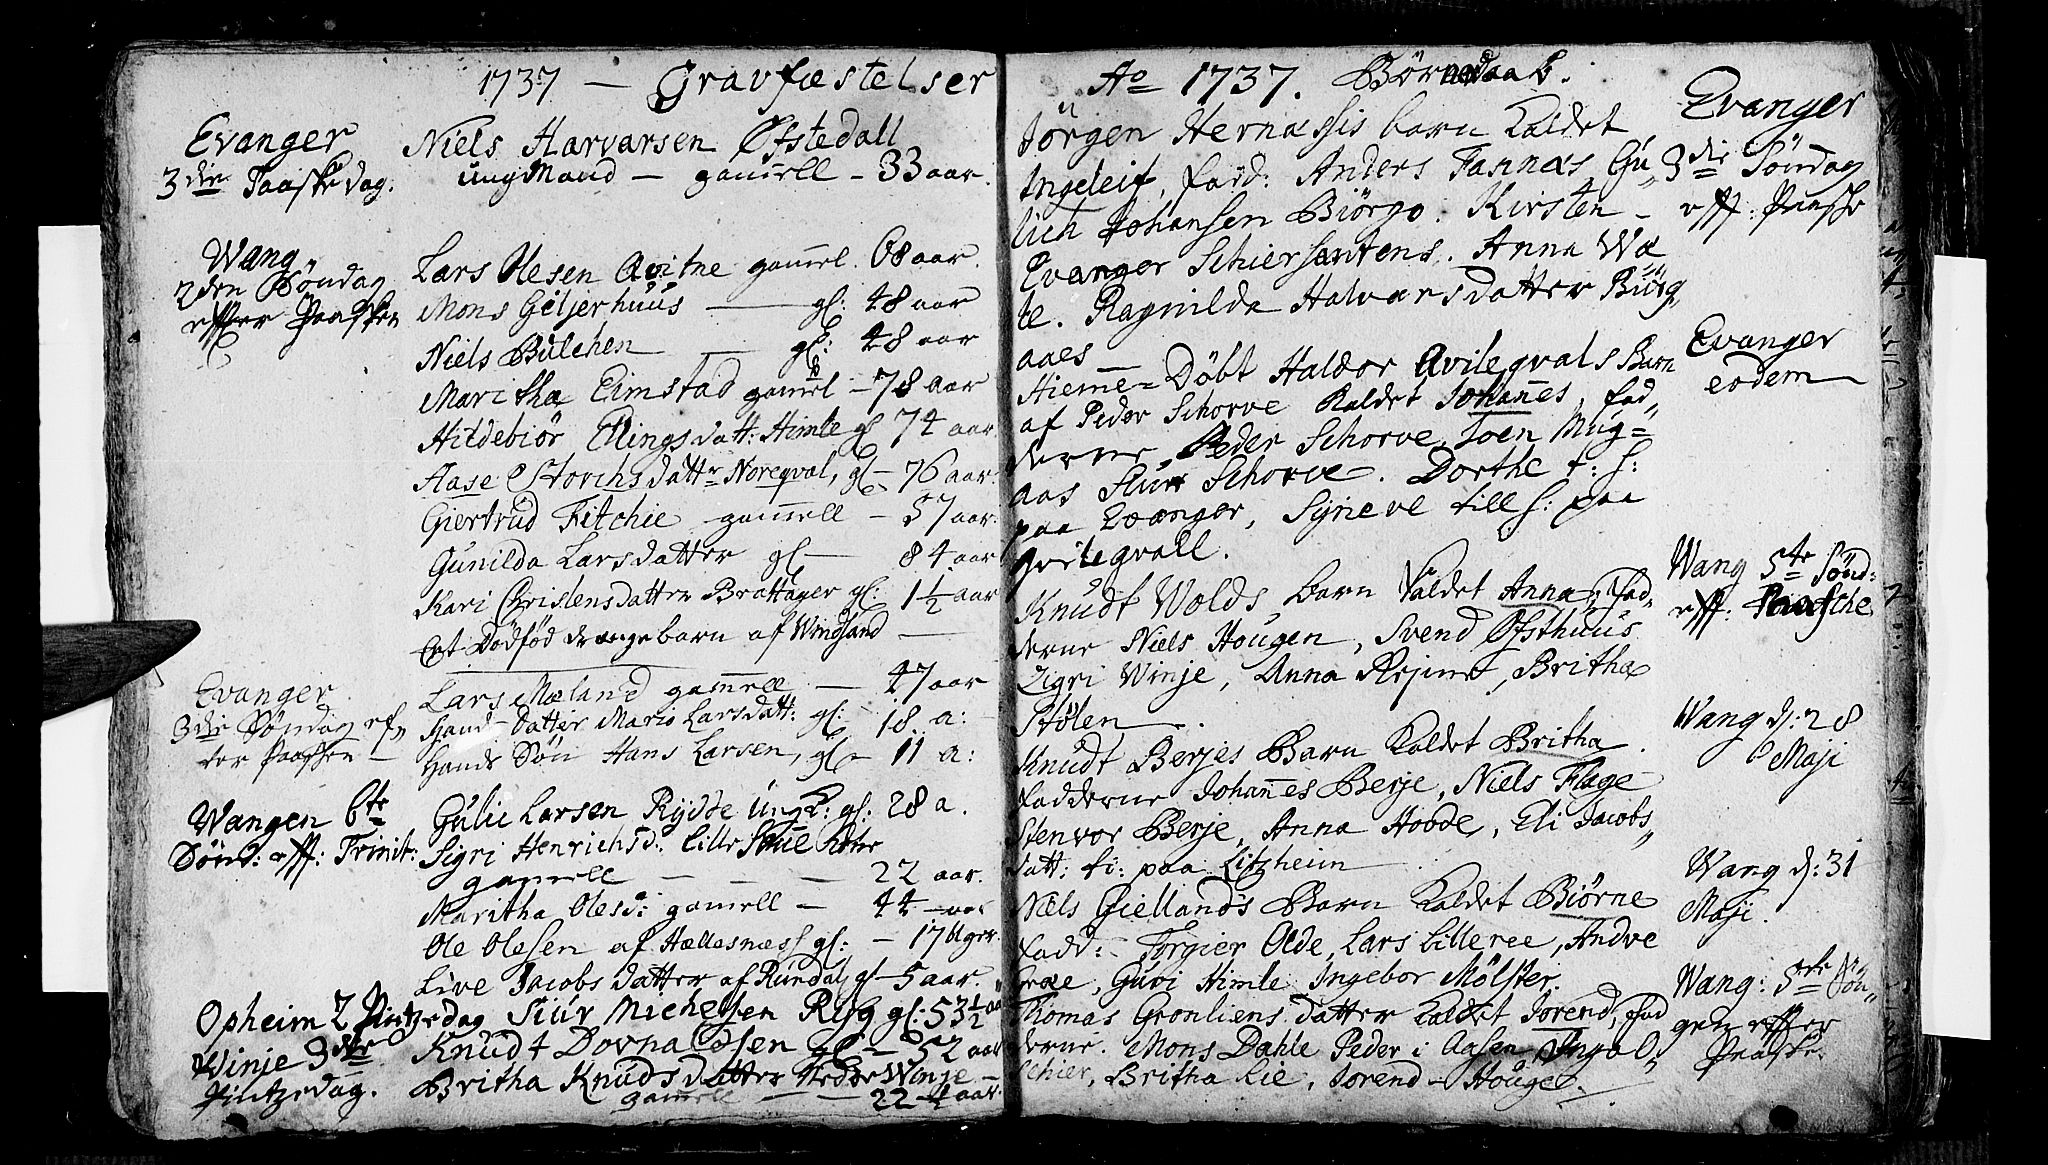 1737 — Gravfæstelser
Evanger
3die Paaskedag.
Niels Harvarsen Øfstedall
ung Mand — gamell — 33 aar.
Wang
2den Søndag
effter Paasken
Lars Olesen Qvitne gamel 68 aar.
Mons Giljerhuus — gl: 48 aar
Niels Bulchen — gl: 48 aar
Maritha Eimstad gamel — 78 aar
Hildebiør Ellingsdatt: Himle gl 74 aar.
Aase Storchsdattr Noreqval, gl — 76 aar.
Giertrud Fitchie gamell — 57 aar:
Gunilda Larsdatter gl — 84 aar
Kari Christensdatter Brattager gl: 1½ aar
Et Dødfød drængebarn af Windsand —
Evanger
3die Søndag ef„
ter Paasken —
Lars Mæland gamell — 47 aar
Hands Datter Mario Larsdatt: gl: 18 a:
Hands Søn Hans Larsen, gl — 11 a:
Wangen 6te
Sønd: eff: Trinit:
Gulic Larsen Rydde Ungk: gl: 28 a.
Sigri Henrichsd: Lille
gamell — — — 22 aar.
Maritha Olesd: gamell — 44 aar
Ole Olesen af Hællesness gl: — 17 Uger.
Live Jacobsdatter af Rundal gl — 5 aar.
Opheim 2 Pintzedag
Siur Michelsen Rigg gl: 53½ aa
Winje 3die
Pintzedag.
Knudt Olsen gl — 52 aar
Britha Knudsdatter Nedre Winje —
gamell — — 22½ aar.
Ao 1737. Børnedaab.
Evanger
3die Søndag
eff: Paasche
Jørgen Hernæssis barn kaldet
Ingeleif, fadd: Anders Fannæs, Gu„
lich Johansen Biørgo. Kirsten —
Evanger Schiersantens. Anna Wæ
te. Ragnilda Halvarsdatter Burg„
aaes —
Evanger
eodem
Hieme=Døbt Haldor Qvileqvals Barn
af Peder Schorve kaldet Johannes, fad„
derne, Peder Schorve, Joen Mug=
aas Siur Schorve. Dorthe t: h:
paa Evanger, Syneve till h: paa
Qvileqvall.
Wang 5te Sønd:
eff: Paasche
Knudt Wolds barn kaldet Anna, Fad„
derne Niels Hougen, Svend Øfsthuus
Zigri Winje, Anna Rejme, Britha
Stølen —.
Wang d: 28
Maji
Knudt Berjes Barn kaldet Britha.
Fadderne Johannes Berje, Niels Flage
Stenvor Berje, Anna Hodde, Eli Jacobs„
datt: ti: paa Litzheim —
Wang d: 31
Maji.
Niels Giellands Barn kaldet Biørne
fadd: Torgier Olde, Lars Lilleree, Andve
Græe, Guri Himle Ingebor Mølster.
Wang: 5te Søn„
gen effter
Paaske
Thomas Grønliens datter kaldet Jorend, fad
derne. Mons Dahle Peder i Aasen Inga O„
Schier, Britha Lie, Jorend — Houge.